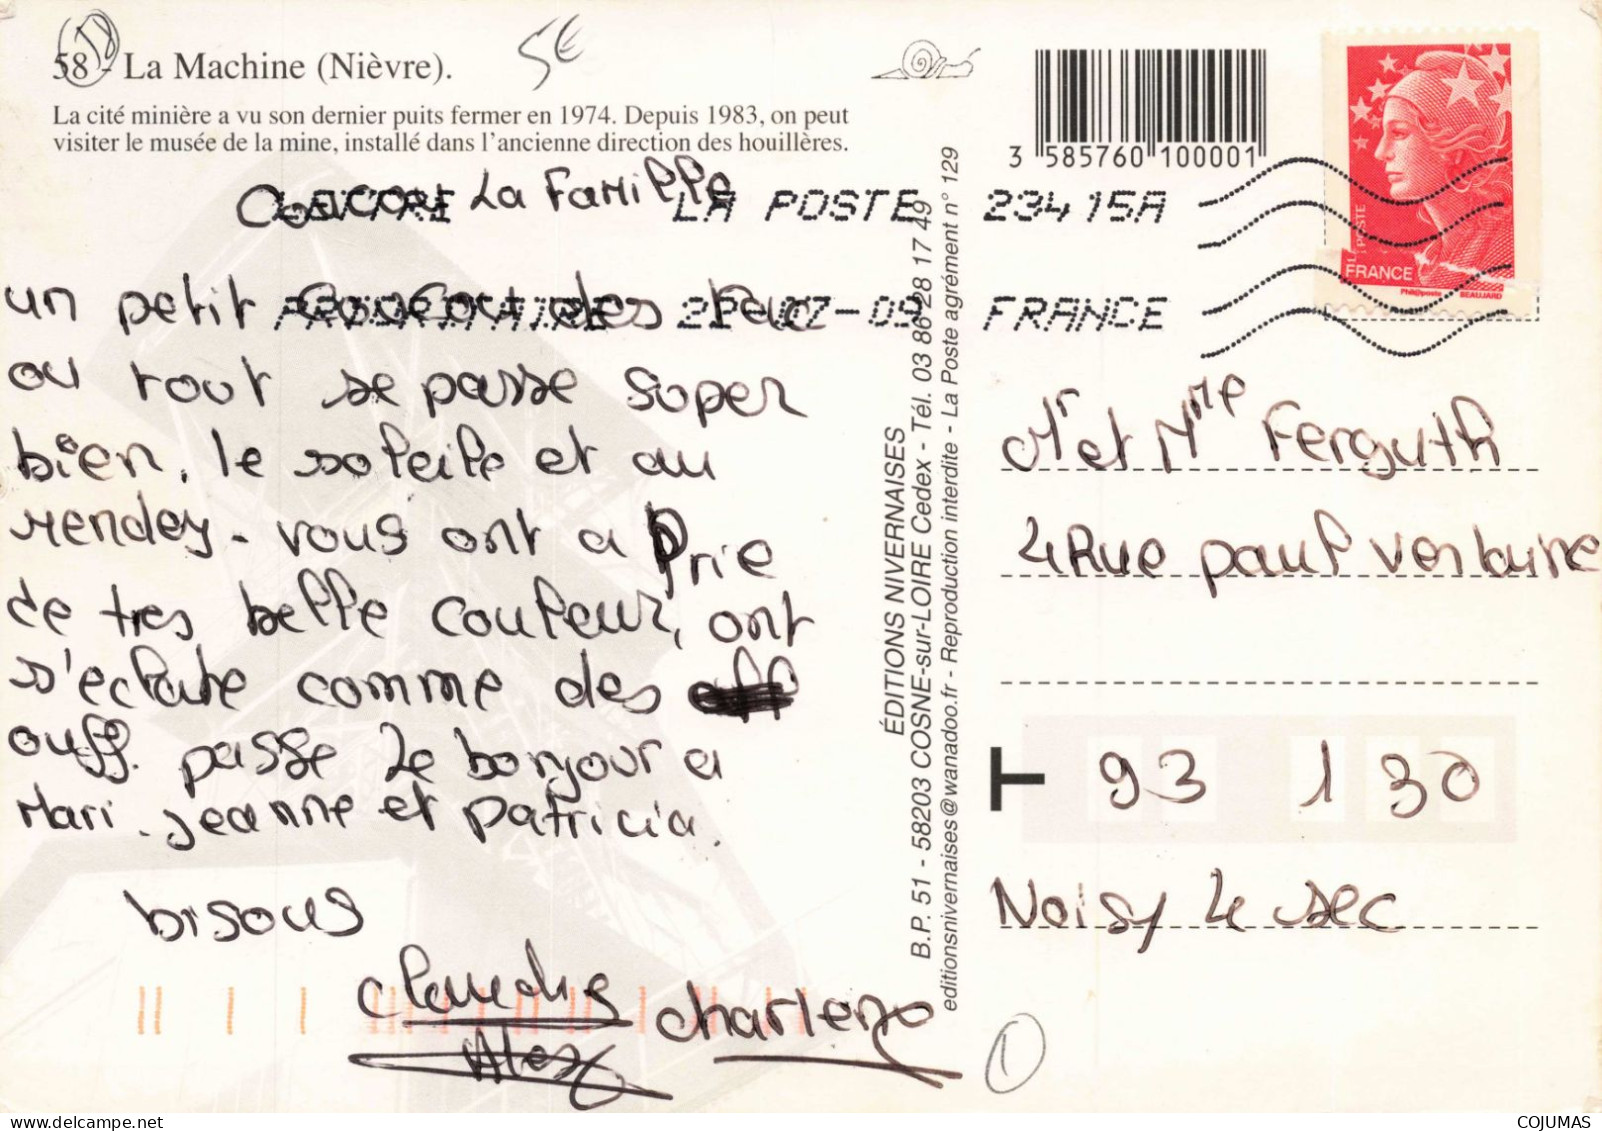 58 - La Machine (Nièvre).
5€
La cité minière a vu son dernier puits fermer en 1974. Depuis 1983, on peut
visiter le musée de la mine, installé dans l'ancienne direction des houillères.
3 585760 100001
LA POSTE
FRANCE
Phil@poste BEAUJARD
LA POSTE 23415A
22-07-09 FRANCE
Coucou La Famille
un petit Coucou des
ou tout se passe super
bien, le soleile et au
rendey-vous ont a prie
de tres belle couleur, ont
s'eclate comme des
ouff. passe le bonjour a
Mari-Jeanne et Patricia.
bisous
Claudie
Alex
Charlene
ÉDITIONS NIVERNAISES
B.P. 51 - 58203 COSNE-sur-LOIRE Cedex - Tél. 03 86 28 17 49
editionsnivernaises@wanadoo.fr - Reproduction interdite - La Poste agrément n° 129
Mr et Mme Ferguth
4 Rue paul verlaine
T 93 130
Noisy le sec
1
COJUMAS